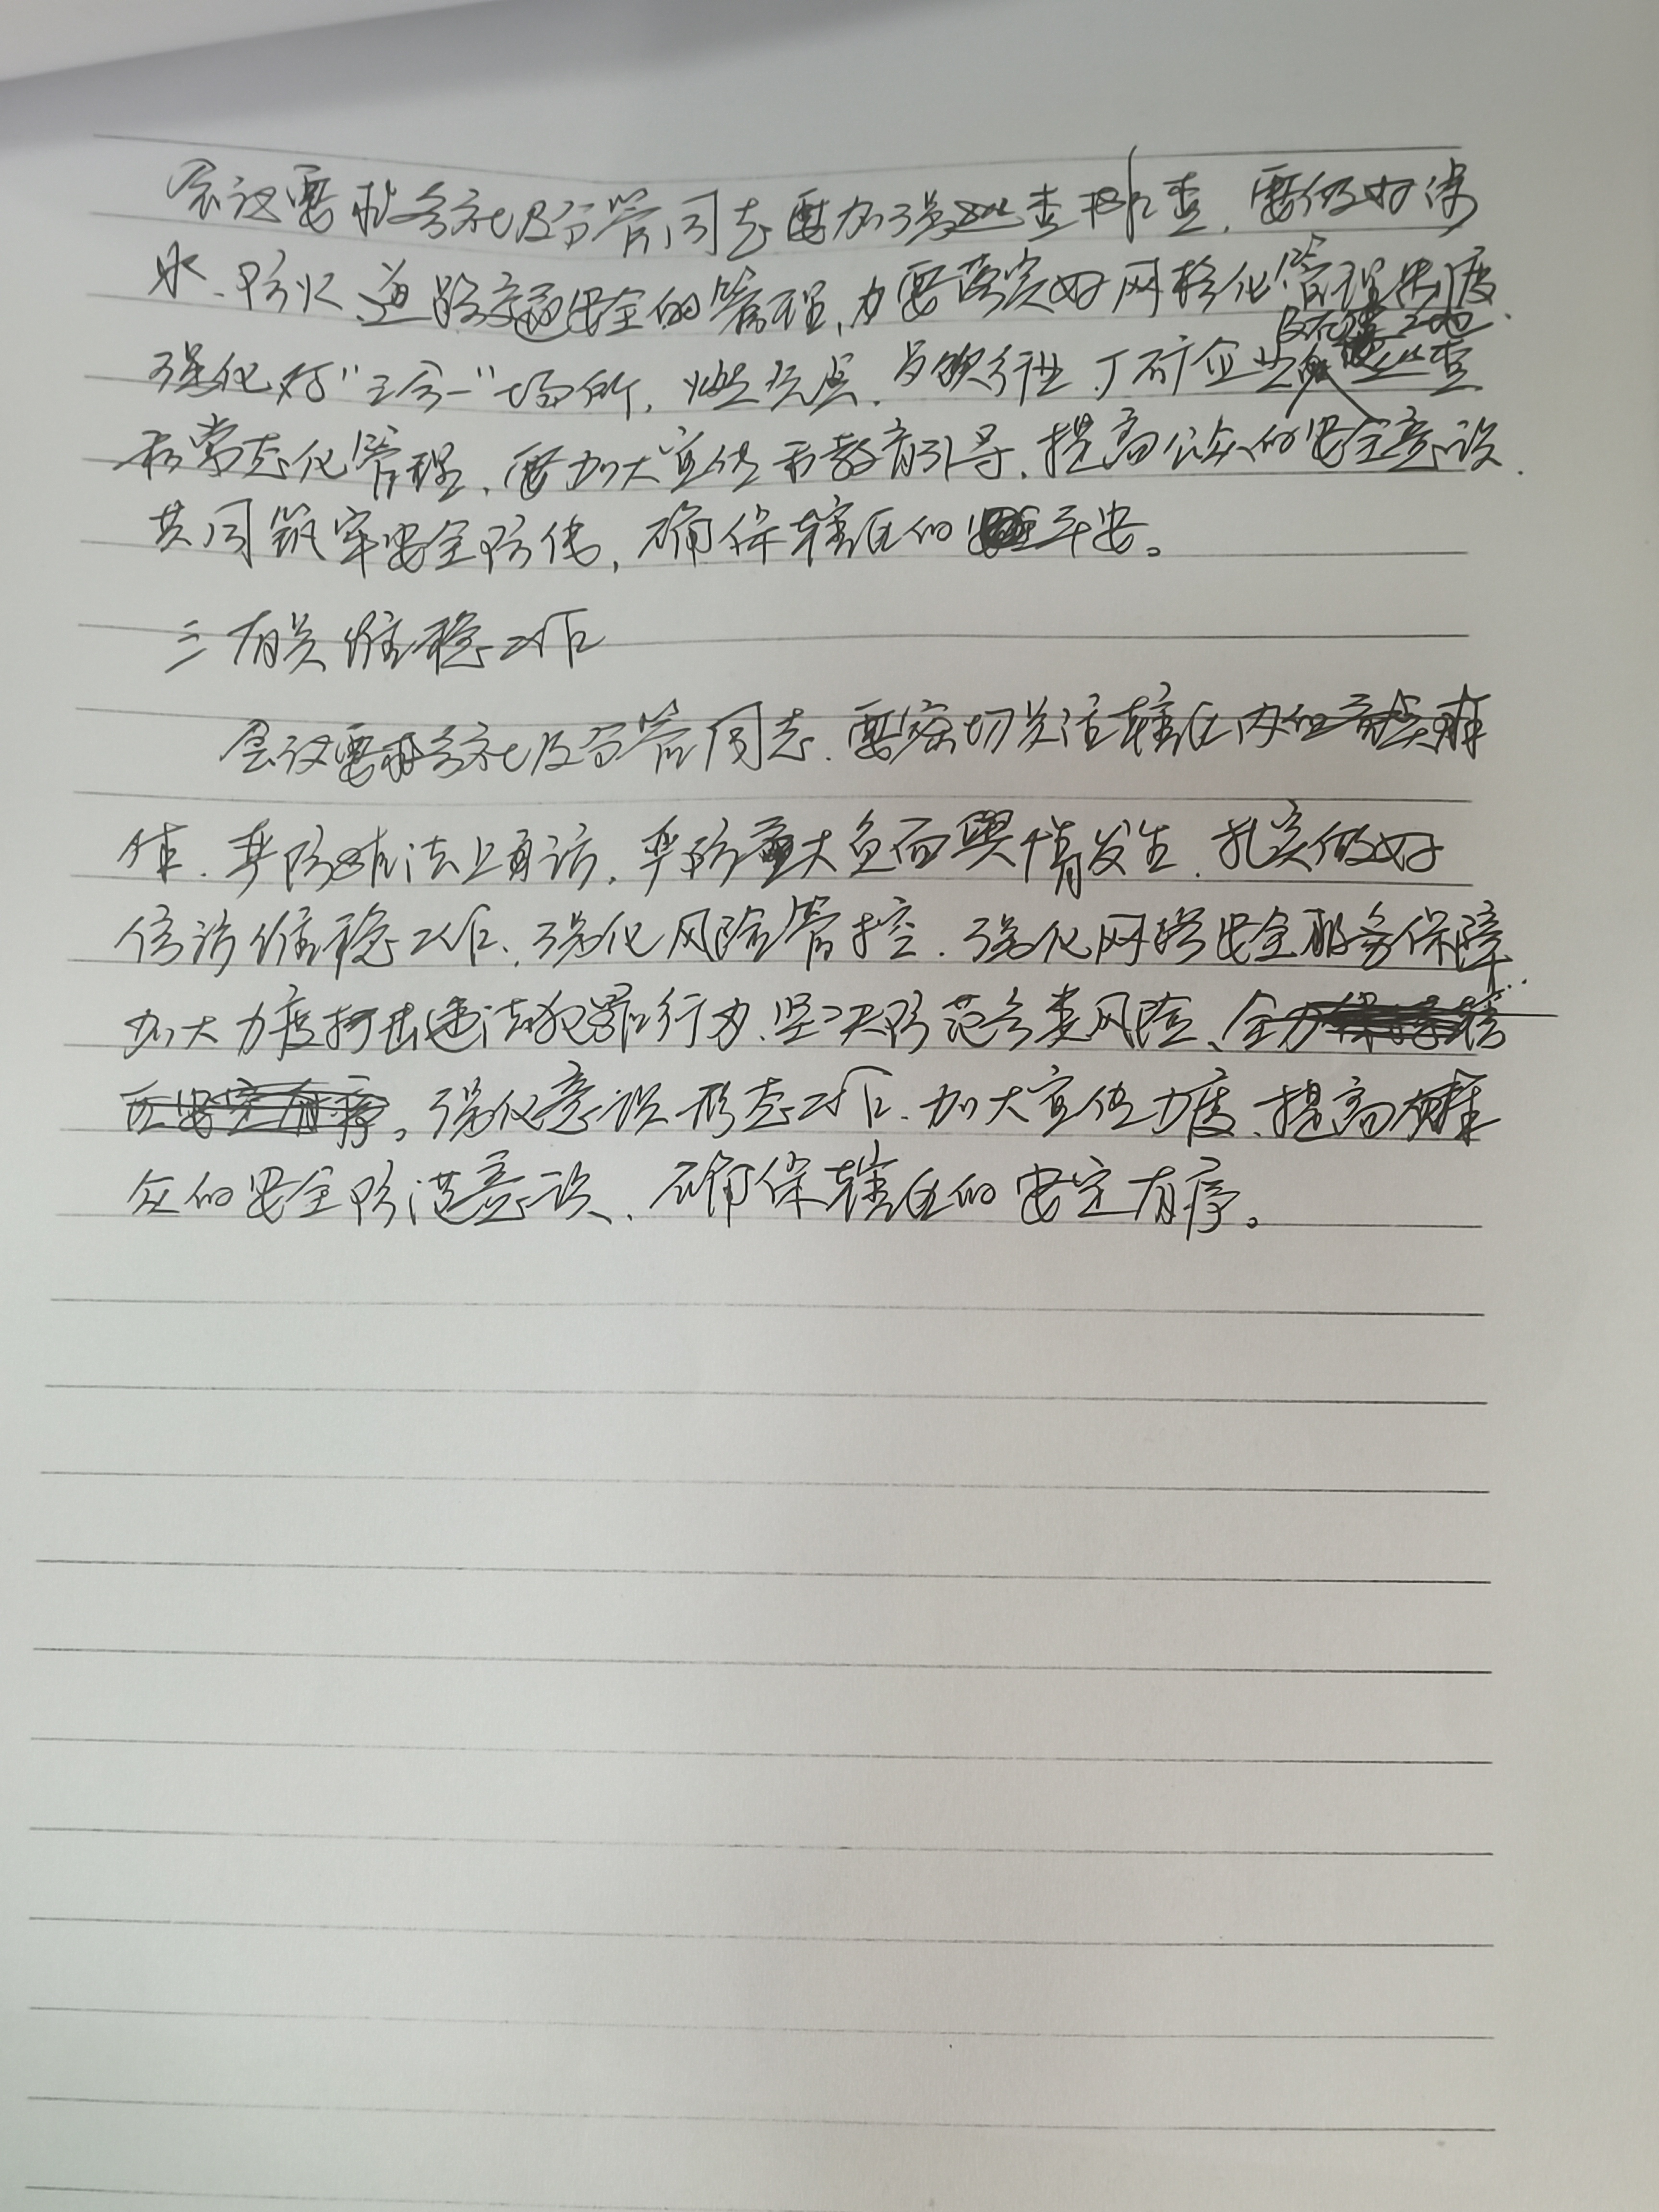 会议要求各社及分管同志要加强巡查排查，要做好溺
水、防火、道路交通安全的管理，要落实好网格化管理制度，
强化对“三合一”场所，燃气点，厂矿企业及在建工地巡查
和常态化管理，要加大宣传和教育引导，提高公众的安全意识，
共同筑牢安全防线，确保辖区的平安。
三有关维稳工作
会议要求各社及分管同志，要密切关注辖区内的重点群
体，严防非法上访，严防重大负面舆情发生，扎实做好
信访维稳工作，强化风险管控，强化网络安全服务保障，
加大力度打击违法犯罪行为，坚决防范各类风险、
强化意识形态工作，加大宣传力度、提高群
众的安全防范意识，确保辖区的安定有序。